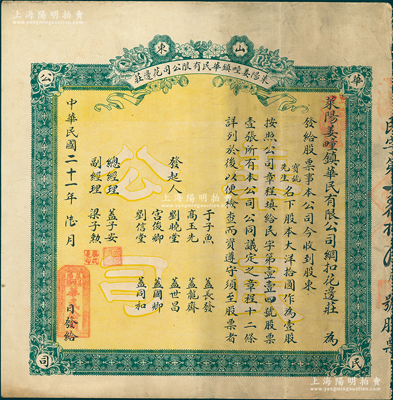 上海陽明拍賣
山東
萊陽姜疃鎮華民有限公司花邊莊
華
民
公
司
萊陽姜疃鎮華民有限公司網扣花邊莊 為
發給股票事本公司今收到股東
先生名下股本大洋拾圓作為壹股
按照公司章程填給民字第壹壹四號股票
壹張所有本公司公同議定之章程十二條
詳列於後以便檢查而資遵守須至股票者
發起人
于子魚
高玉光
劉曉堂
宮俊卿
劉信堂
蓋長發
蓋龍齋
蓋世昌
蓋國卿
蓋同和
總經理 蓋子安
副經理 梁子敕
中華民國二十一年 月 日發給
公司
上海陽明拍賣有限公司